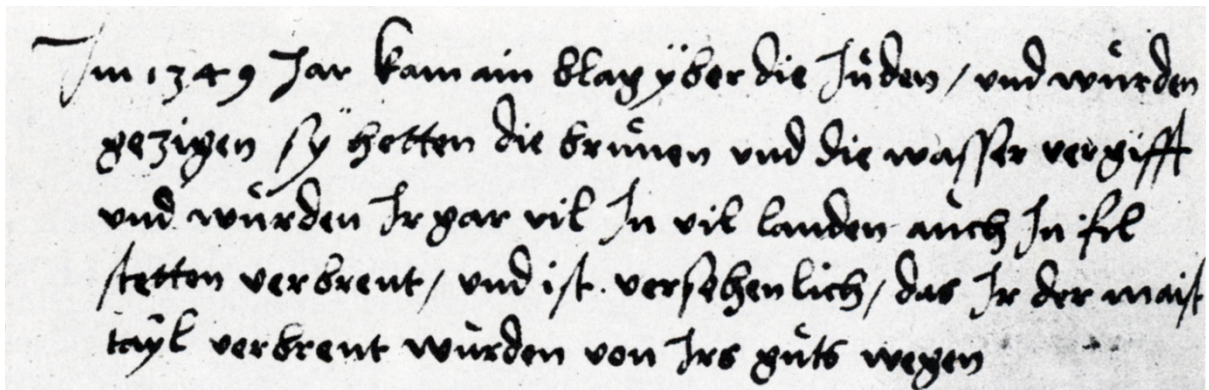 Im 1349 Jar kam ain blag ÿber die Jůden / und wůrden
gezigen sÿ hetten die brůnen und die wasser vergifft
und wůrden Ir gar vil In vil landen aůch In fil
stetten verbrent / und ist versehenlich / das Ir der maist
tayl verbrent wůrden von Irs gůts wegen